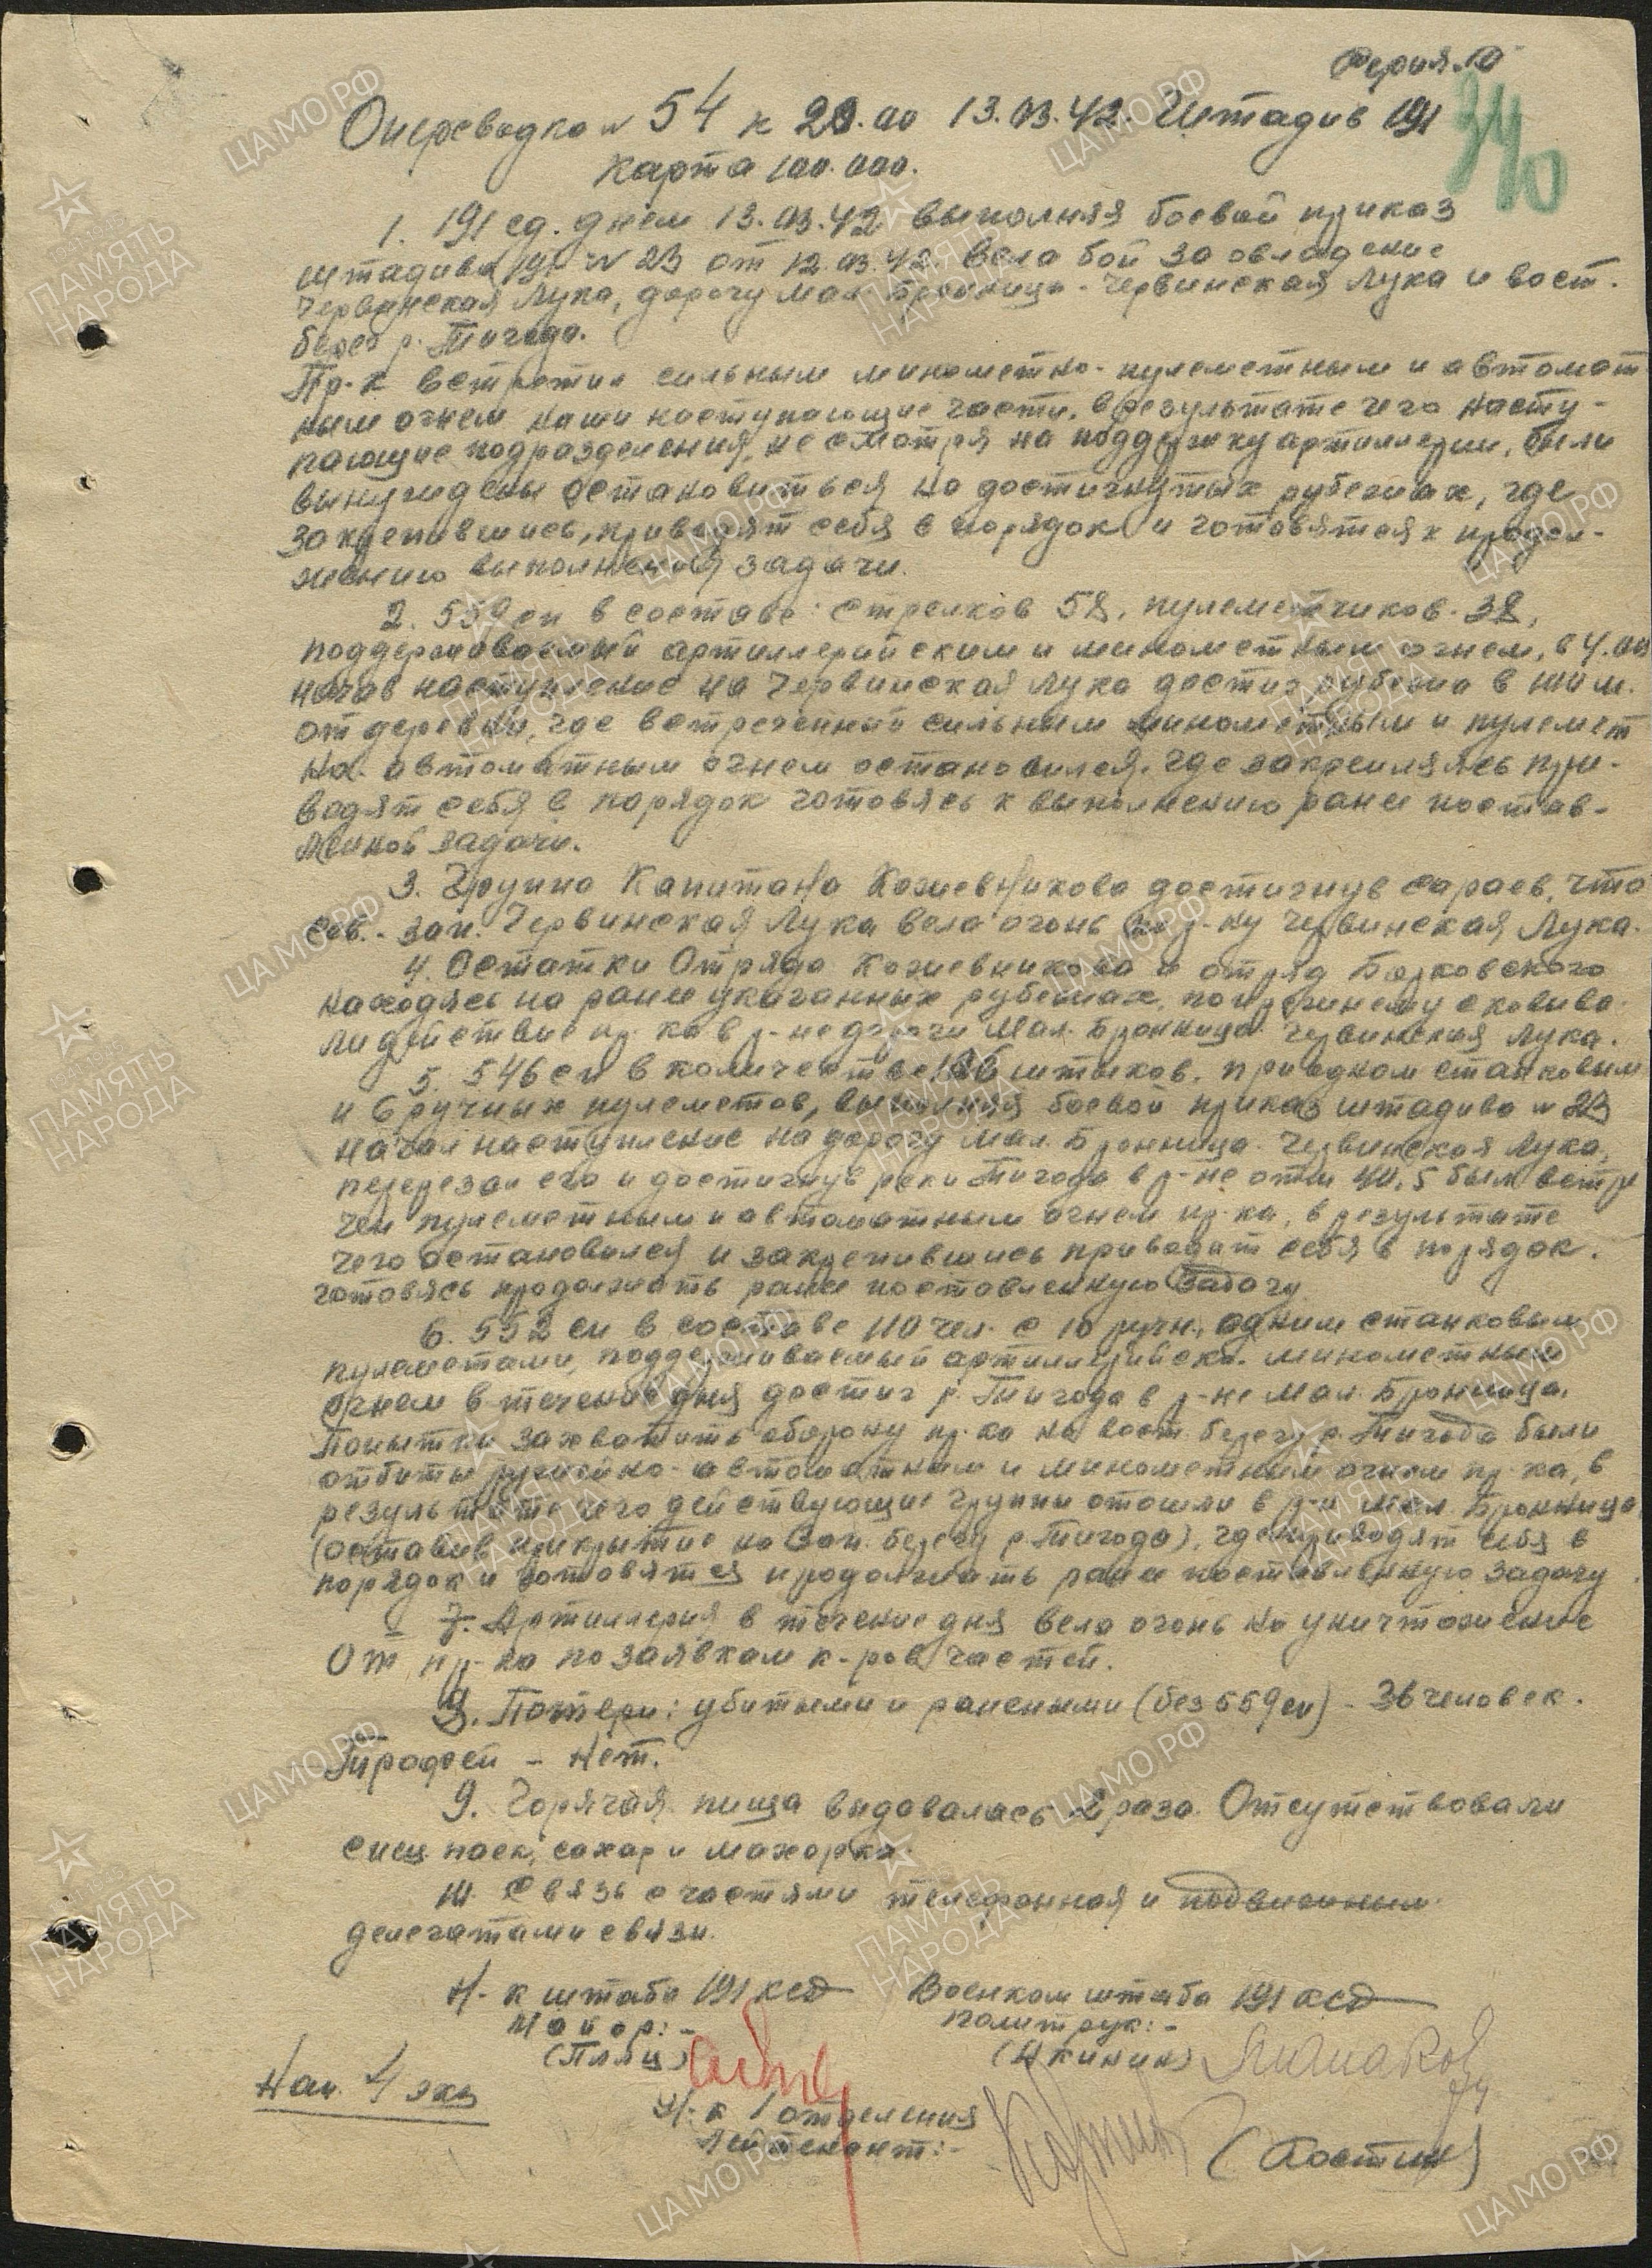 Серия "Г"
340
Оперсводка № 54 к 20.00 13.03.42. Штадив 191
Карта 100.000.
1. 191 сд. днем 13.03.42 выполняя боевой приказ
штадива 191 № 23 от 12.03.42. вела бой за овладение
Червинская Лука, дорогу Мал. Бронница - Червинская Лука и вост.
берег р. Тигода.
Пр-к встретил сильным минометно-пулеметным и автомат
ным огнем наши наступающие части, в результате чего насту-
пающие подразделения, не смотря на поддержку артиллерии, были
вынуждены остановиться на достигнутых рубежах, где
закрепившись, приводят себя в порядок и готовятся к продол-
жению выполнения задачи.
2. 559 сп в составе: стрелков 58, пулеметчиков - 38,
поддерживаемый артиллерийским и минометным огнем, в 4.00
начав наступление на Червинская Лука достиг рубежа в
от деревни, где встреченный сильным минометным и пулемет
но-автоматным огнем остановился, где закрепляясь при-
водят себя в порядок готовясь к выполнению ранее постав-
ленной задачи.
3. Группа Капитана Кожевникова достигнув сараев, что
сев.-зап. Червинская Лука вела огонь по р-ну Червинская Лука.
4. Остатки Отряда Кожевникова и отряд Барковского
находясь на ранее указанных рубежах, по прежнему сковыва
ли действие пр-ка в р-не дороги Мал. Бронница - Червинская Лука.
5. 546 сп в количестве 186 штыков, при одном станковым
и 6 ручных пулеметов, выполняя боевой приказ штадива № 23
начал наступление на дорогу Мал. Бронница - Червинская Лука,
перерезал его и достигнув реки Тигода в р-не отм 40,5 был встре
чен пулеметным и автоматным огнем пр-ка, в результате
чего остановился и закрепившись приводит себя в порядок.
готовясь продолжать ранее поставленную задачу.
6. 552 сп в составе 110 чел. с 10 ручн., одним станковым
пулеметами, поддерживаемый артиллерийско-минометным
огнем в течение дня достиг р. Тигода в р-не Мал. Бронница.
Попытки захватить оборону пр-ка на вост. берегу р. Тигода были
отбиты ружейно-автоматным и минометным огнем пр-ка, в
результате чего действующие группы отошли в р-н Мал. Бронница
(оставив прикрытие на Зап. берегу р. Тигода), где приводят себя в
порядок и готовятся продолжать ранее поставленную задачу.
7. Артиллерия в течение дня вела огонь на уничтожение
О.Т. пр-ка по заявкам к-ров частей.
8. Потери: убитыми и ранеными (без 559 сп) - 36 человек.
Трофей - Нет.
9. Горячая пища выдавалась 2 раза. Отсутствовали
спец паек, сахар и махорка.
10. Связь с частями телефонная и подвижными
делегатами связи.
Н-к штаба 191 ксд Военком штаба 191 ксд
Майор:- политрук:-
(Пляц)
Нап. 4 экз
Н-к 1 отделения
Лейтенант:-
(Костин)
ЦАМО.РФ
ПАМЯТЬ НАРОДА